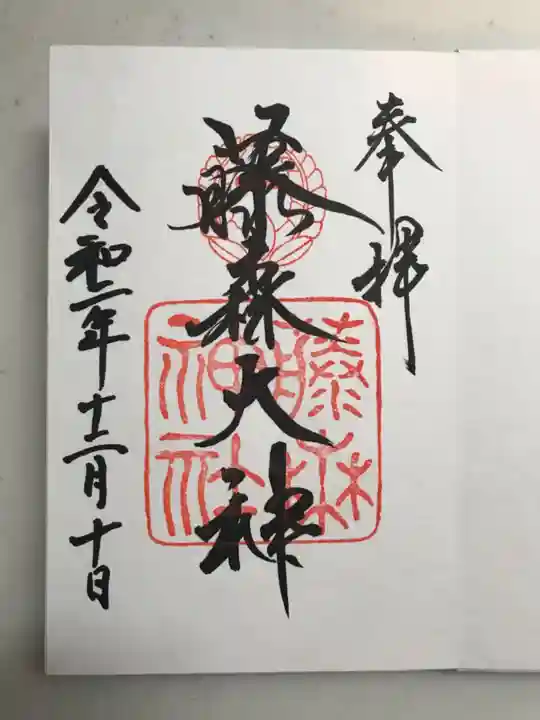 奉拝
藤森大神
藤森
神社
令和二年十二月十日